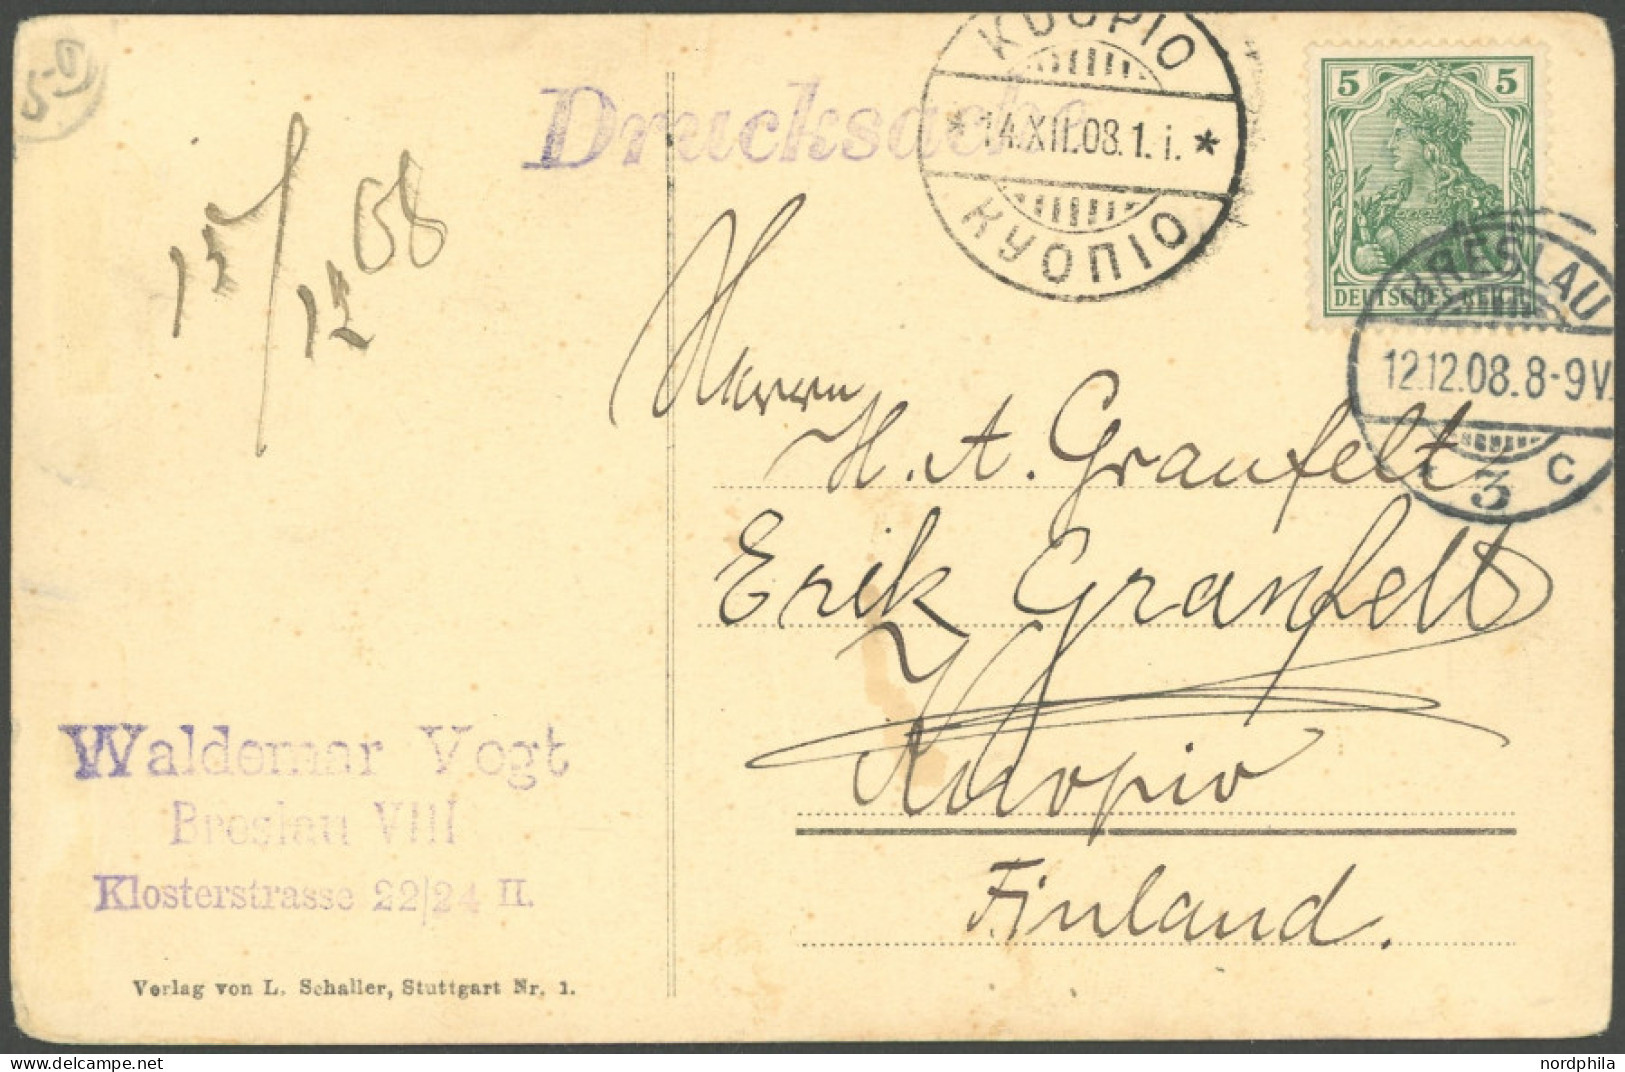 5-0
KUOPIO
* 14.XII.08.1.i. *
КУОПІО
Drucksache
5 5
DEUTSCHES REICH
BRESLAU
12.12.08.8-9V.
* 3 c
15/12 08
Herrn
H. A. Granfelt
Erik Granfelt
Kuopio
Finland.
Waldemar Vogt
Breslau VIII
Klosterstrasse 22/24 II.
Verlag von L. Schaller, Stuttgart Nr. 1.
nordphila